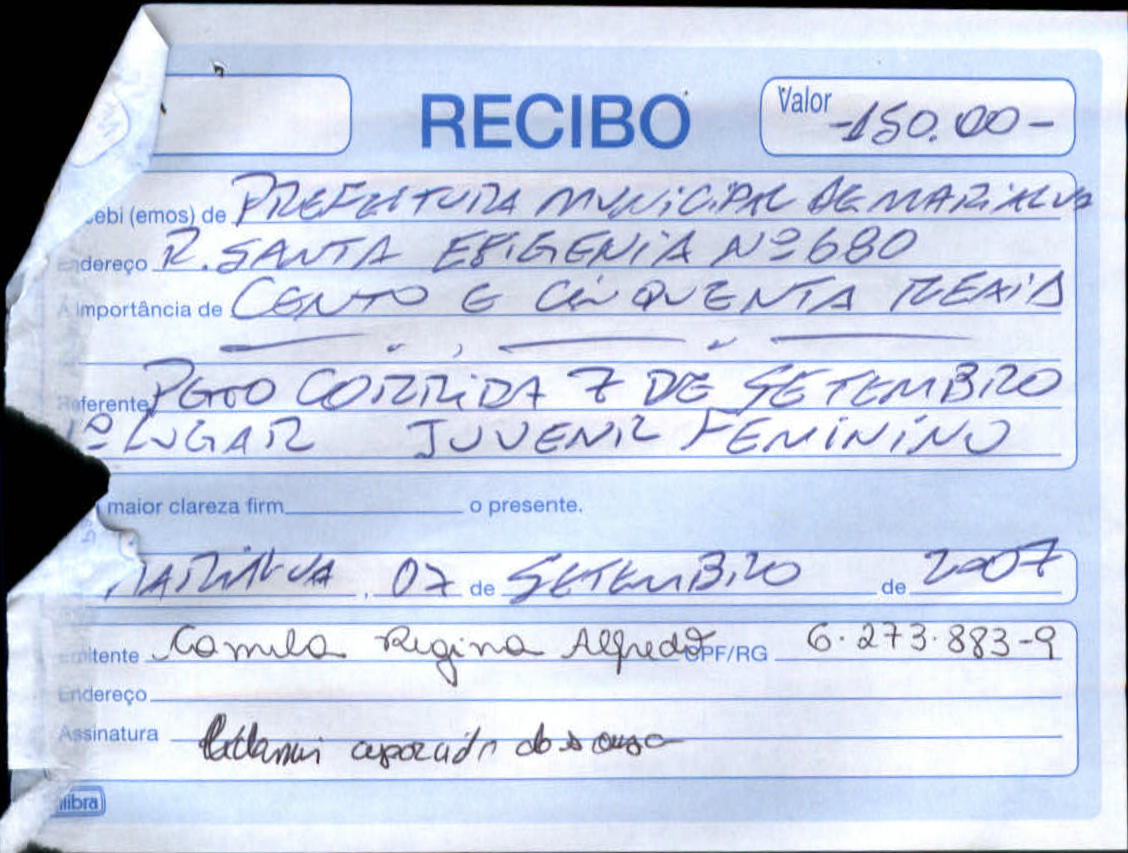 RECIBO
Valor -150.00-
cebi (emos) de PREFEITURA MUNICIPAL DE MARIALVA
ndereço R. SANTA EFIGENIA Nº 680
A importância de CENTO E CINQUENTA REAIS
Referente PGTO CORRIDA 7 DE SETEMBRO
1º LUGAR JUVENIL FEMININO
maior clareza firm__________ o presente.
MARIALVA, 07 de SETEMBRO de 2007
Emitente Camila Regina Alfredo CPF/RG 6.273.883-9
Endereço
Assinatura aparecido de souza
tilibra